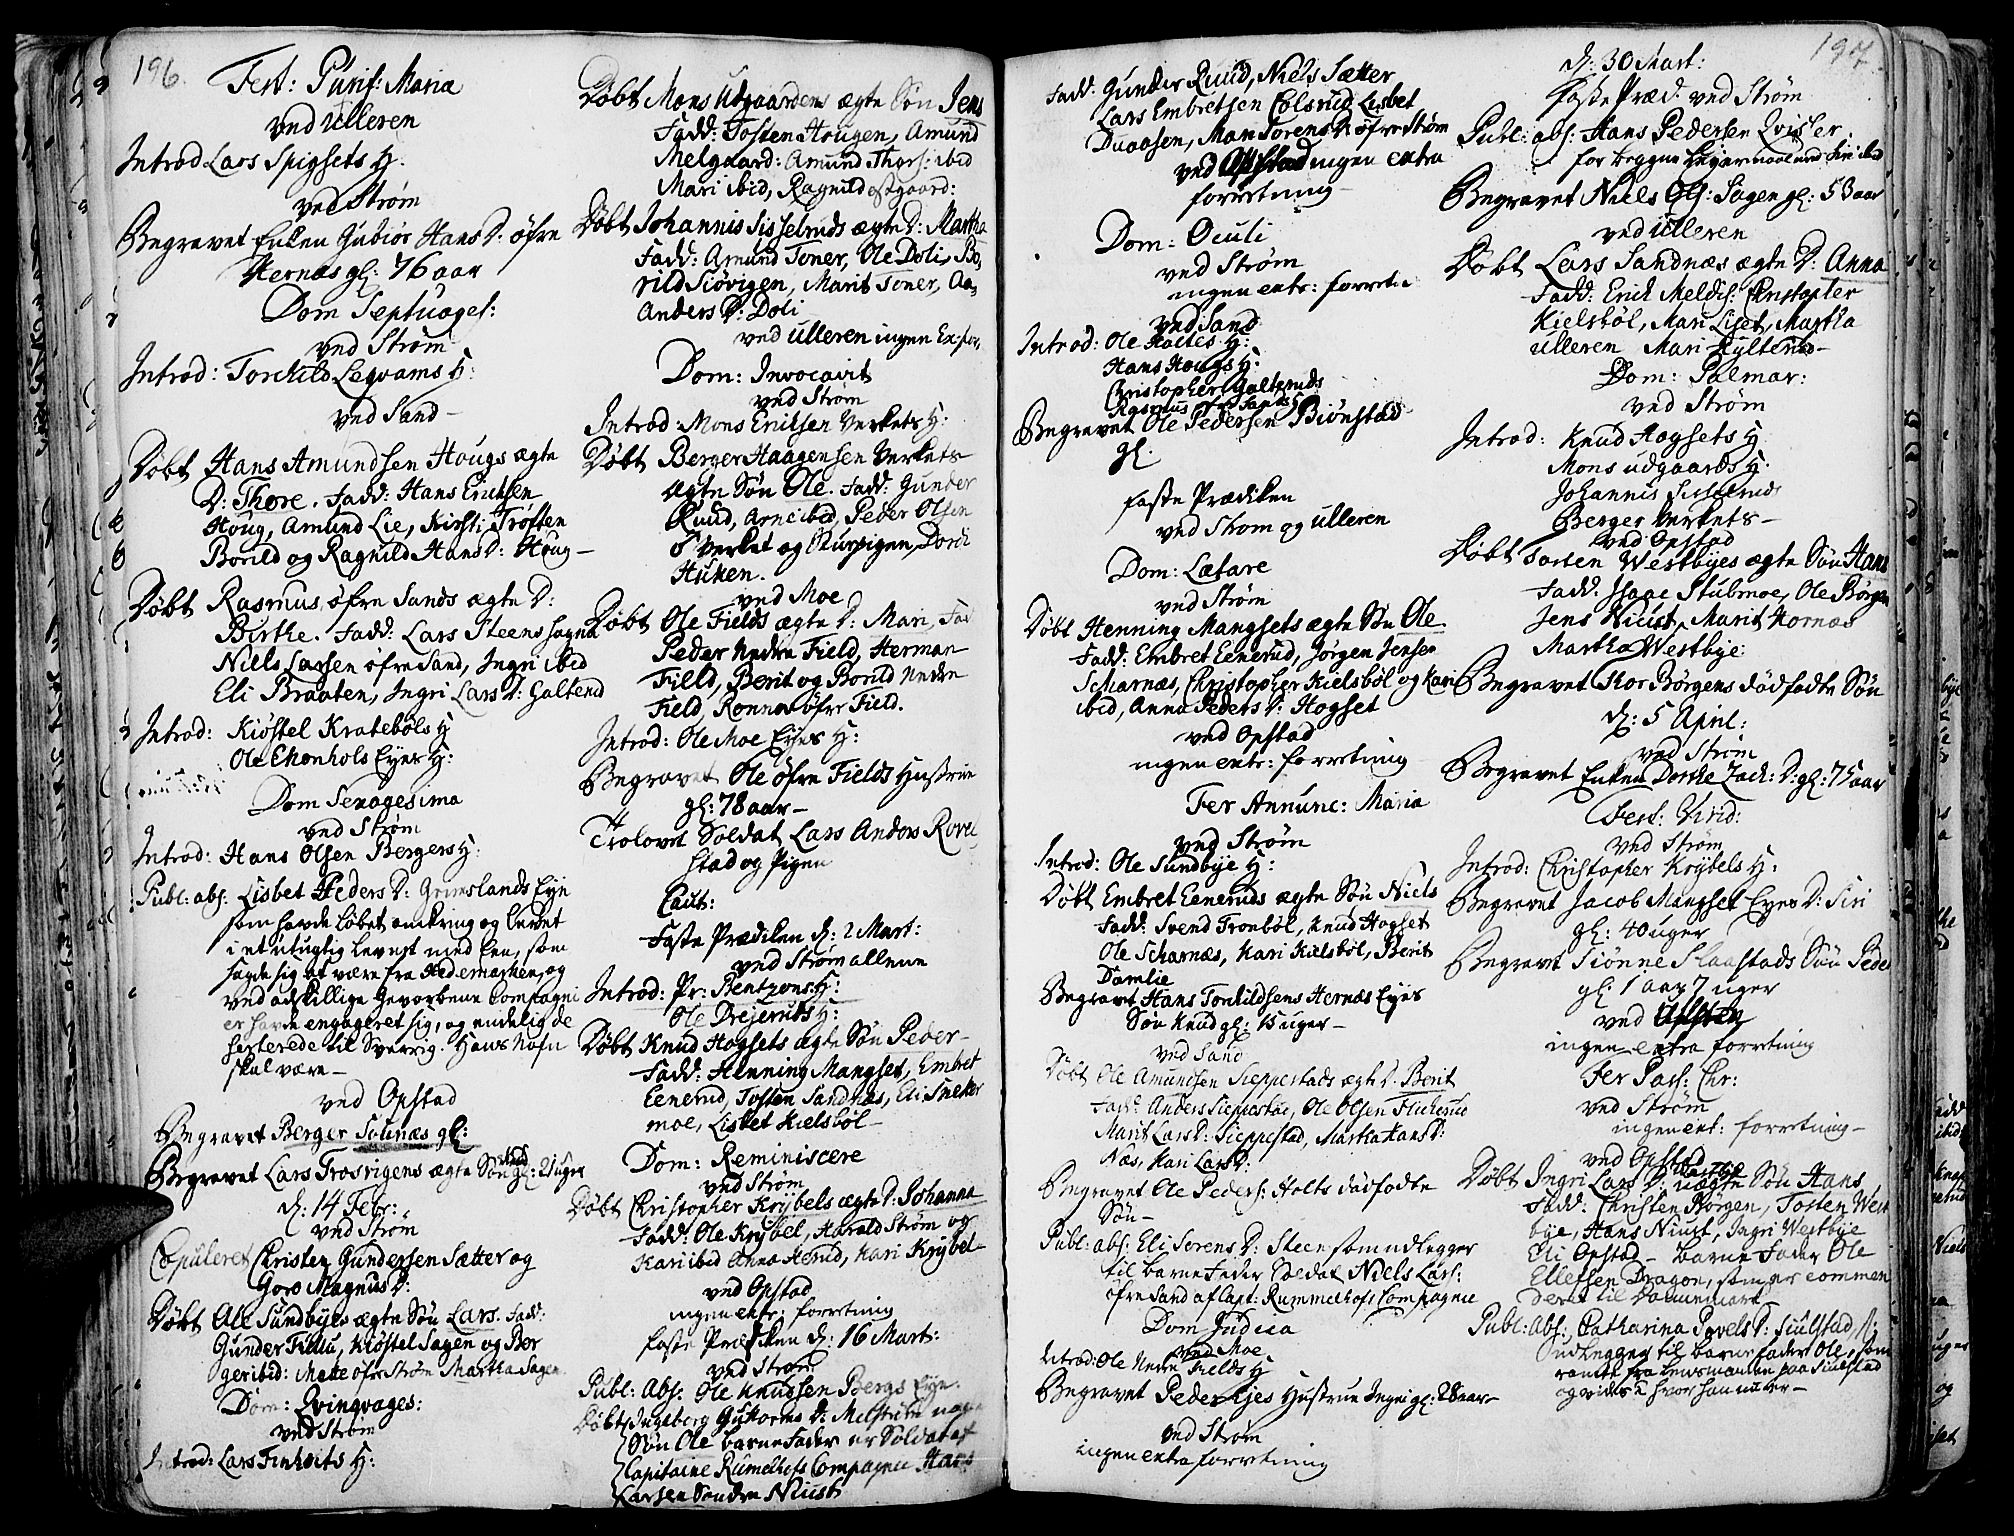 196.
Fest: Purif: Mariæ
ved Ulleren
Introd Lars Spigsets H:
ved Strøm
Begravet Enken Gubiør Hans D: øfre
Hernæs gl: 76 aar
Dom Septuages:
ved Strøm
Introd: Torkild Legvams H:
ved Sand
Døbt Hans Amundsen Hougs ægte
D: Thore. Fadd: Hans Erichsen
Houg, Amund Lie, Kirsti Trøften
Borild og Ragnild Hans D: Houg
Døbt Rasmus øfre Sands ægte D:
Birthe. Fadd: Lars Steensagna
Niels Larsen øfre Sand, Ingri ibid
Eli Braaten, Ingri Lars D: Galterud
Introd: Kiøstel Kratebøls H
Ole Ekornhols Eyes H:
Dom Sexagesima
ved Strøm
Introd: Hans Olsen Bergers H:
Publ: abs: Lisbet Peders D: Grimslands Eye
som havde løbet omkring og levet
i et utugtig levnet med een, som
sagde sig at være fra Hedemarken, og
ved adskillige Gevorbene Compagni
er havde engageret sig, og endelig de
serterede til Sverrig. Hans Nafn
skal være
ved Opstad
Begravet Berger Solnæs gl:
Begravet Lars Trosvigens ægte Søn gl: 21 uger
d: 14 Febr:
ved Strøm
Copuleret Christen Gundersen Sætter og
Goro Magnus D:
Døbt Ole Sundbyes ægte Søn Lars. Fadd:
Gunder Finu, Kiøstel Sagen og Ber
ger ibid: Mette øfre Strøm Martha Sagen
Dom: Qvinqvages:
ved Strøm
Introd: Lars Finholts H:
Døbt Mons Udgaardens ægte Søn Jens
Fadd: Tosten Hougen, Amund
Melgaard: Amund Thors: ibid
Mari ibid, Ragnild Østgaard:
Døbt Johannis Sisselruds ægte D: Martha
Fadd: Amund Toner, Ole Doli, Bo-
rild Siøvigen, Marit Toner, Aa-
Anders D: Doli
ved Ulleren ingen Ex: for:
Dom: Invocavit
ved Strøm
Introd: Mons Erichsen Verkets H:
Døbt Berger Haagensen Verkets
ægte Søn Ole. Fadd: Gunder
Ruud, Arne ibid, Peder Olsen
Verket og Stuepigen Dordi
Huken.
ved Moe
Døbt Ole Fields ægte D: Mari, Fad
Peder Nedre Field, Herman
Field, Berit og Borild Nedre
Field, Ronnou øfre Field.
Introd: Ole Moe Eyes H:
Begravet Ole øfre Fields Hustrue
gl: 78 aar
Trolovet Soldat Lars Anders Rovel
stad og Pigen
Caut:
Faste Prædiken d: 2 Mart:
ved Strøm allene
Introd: Pr: Bentzons H:
Ole Drejeruds H:
Døbt Knud Hogsets ægte Søn Peder
Fadd: Henning Mangset, Embret
Eenerud, Tosten Sandnæs, Eli Sneker
moe, Lisbet Kielsbøl
Dom: Reminiscere
ved Strøm
Døbt Christopher Krybels ægte D: Johanna
Fadd: Ole Krybel, Harald Strøm og
Kari ibid Anna Herud, Kari Krybel
ved Opstad
ingen extr: forretning
Faste Prædiken d: 16 Mart:
ved Strøm
Publ: Abs: Ole Knudsen Bergs Eye.
Døbt Ingeborg Guttorms D: Melstrøm uægte
Søn Ole barne Fader er Soldat af
Capitaine Rumelhofs Compagnie Hans
Larsen Søndre Niust
197.
Fadd: Gunder Ruud, Niels Sætter
Lars Embretsen Colsrud Lisbet
Duaasen, Mari Sørens D øfre Strøm
ved Opstad ingen extra
forretning
Dom: Oculi
ved Strøm
ingen extr: forretn:
ved Sand
Introd: Ole Holtes H:
Hans Hougs H:
Christopher Galteruds
Rasmus øfre Sands
Begravet Ole Pedersen Biønstad
gl:
Faste Prædiken
ved Strøm og Ulleren
Dom: Lætare
ved Strøm
Døbt Henning Mangsets ægte Søn Ole
Fadd: Embret Eenerud, Jørgen Jensen
Scharnæs, Christopher Kielsbøl og Kari
ibid, Anna Peders D: Hogset
ved Opstad
ingen extr: forretning
Fer Annunc: Mariæ
ved Strøm
Introd: Ole Sundbye H:
Døbt Embret Eeneruds ægte Søn Niels
Fadd: Svend Tronbøl, Knud Hogset
Ole Scharnæs, Kari Kielsbøl, Berit
Damlie
Begravet Hans Torkildsens Hernæs Eyes
Søn Knud gl: 15 uger
ved Sand
Døbt Ole Amundsen Sieppestads ægte D: Berit
Fadd: Anders Sieppestad, Ole Olsen Flicherud
Marit Lars D: Sieppestad, Martha Hans D:
Næs, Kari Lars D:
Begravet Ole Peders: Holts dødfødte
Søn
Publ: abs: Eli Sorens D: Steen som udlegger
til barne Fader Soldat Niels Lars:
øfre Sand af Capt: Rummelhofs Compagnie
Dom Judica
ved Moe
Introd: Ole Nedre Fields H
Begravet Peder Eyes Hustrue Ingri gl: 28 aar
ved Strøm
ingen extra forretning
d: 30 Mart:
Faste Præd: ved Strøm
Publ: abs: Hans Pedersen Qvisler.
for begge Leyermaal med Siri ibid
Begravet Niels Ols: Sagen gl: 53 aar
ved Ulleren
Døbt Lars Sandnæs ægte D: Anna
Fadd: Erich Meldis: Christopher
Kielsbøl, Mari Liset, Martha
Ulleren Mari Hylterud
Dom: Palmar:
ved Strøm
Introd: Knud Hogsets H
Mons Udgaards H:
Johannis Sisselruds
Berger Verkets
ved Opstad
Døbt Torsten Westbyes ægte Søn Hans
Fadd: Isaac Stubmoe, Ole Børgen
Jens Niust, Marit Hornæs
Martha Westbye:
Begravet Thor Børgens dødfødte Søn
d: 5 April:
ved Strøm
Begravet Enken Dorthe Zach: D: gl: 75 aar
Fest: Virid:
ved Strøm
Introd: Christopher Krybels H:
Begravet Jacob Mangset Eyes D: Siri
gl: 40 uger
Begravet Siønne Slaastads Søn Peder
gl: 1 aar 7 uger
ved Opstad
ingen extra forretning
Fer Pasch: Chr:
ved Strøm
ingen ext: forretning
ved Opstad
Døbt Ingri Lars D: uægte Søn Hans
Fadd: Christen Børgen, Tosten West
bye, Hans Niust, Ingri Westbye
Eli Opstad barne Fader Ole
Ellefsen Dragon, som er commen
deret til Dannemark
Publ: Abs: Catharina Povels D: Siulstad
Udlegger til barnefader Ole, som
rømte fra Lensmanden paa Siulstad
og vides ei hvor han nu er